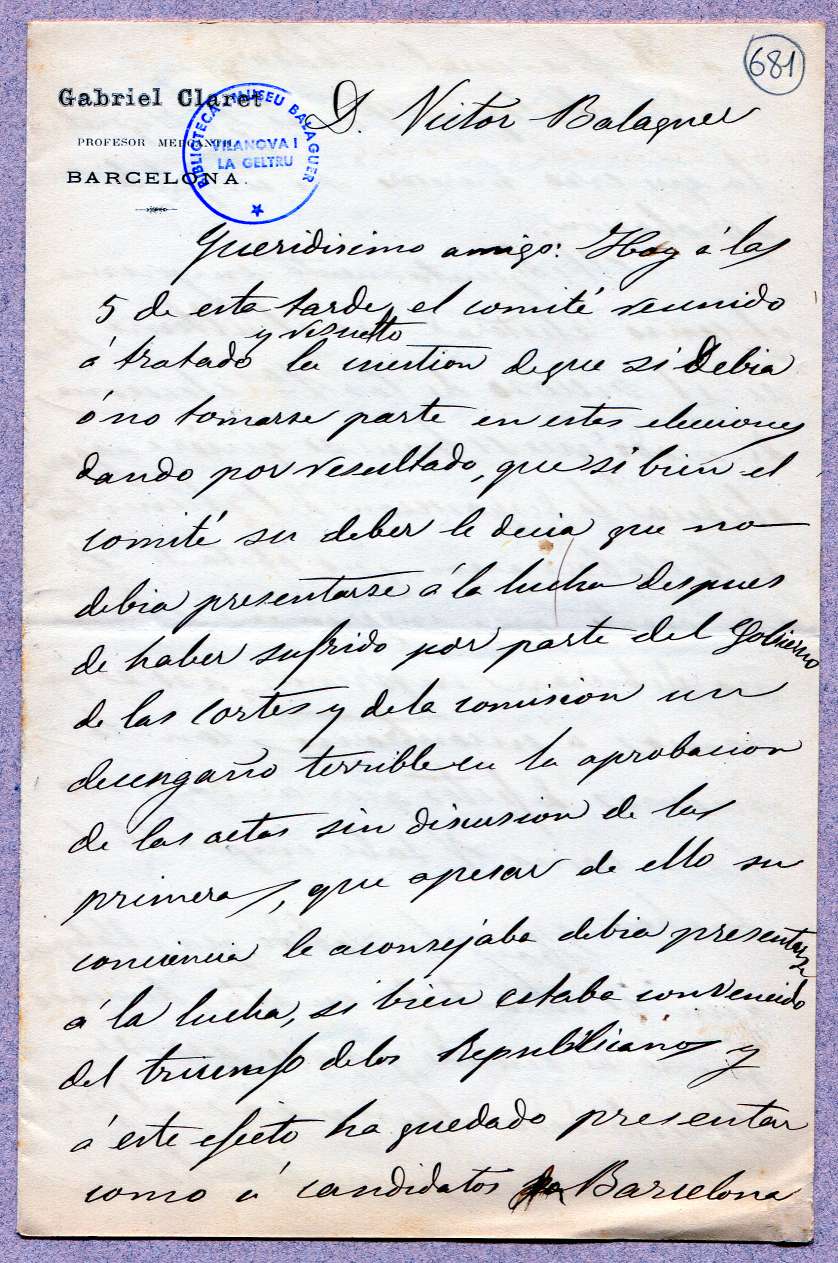 681
Gabriel Claret
PROFESOR MERCANTIL
BARCELONA.
BIBLIOTECA MUSEU BALAGUER
VILANOVA I
LA GELTRU
D. Victor Balaguer
Queridisimo amigo: Hoy á las
5 de esta tarde, el comité reunido
y resuelto
á tratado la cuestion de que si debia
ó no tomarse parte en estas elecciones
dando por resultado, que si bien el
comité su deber le decia que no
debia presentarse á la lucha despues
de haber sufrido por parte del Gobierno
de las cortes y de la comision un
desengaño terrible en la aprobacion
de las actas sin discusion de las
primeras, que apesar de ello su
conciencia le aconsejaba debia presentarse
á la lucha, si bien estaba convencido
del triumfo de los Republicanos y
á este efecto ha quedado presentar
como á candidatos Barcelona